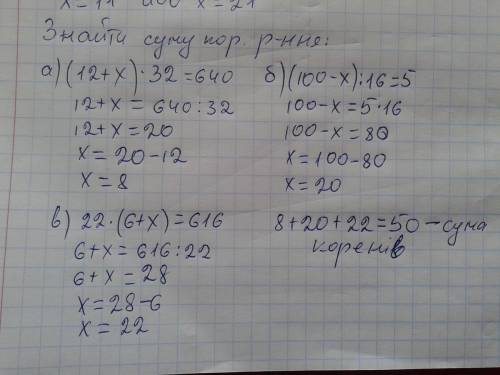 x=11 або x=21
Знайти суму кор. р-ння:
а) (12+x)·32=640
12+x=640:32
12+x=20
x=20-12
x=8
б) (100-x):16=5
100-x=5·16
100-x=80
x=100-80
x=20
в) 22·(6+x)=616
6+x=616:22
6+x=28
x=28-6
x=22
8+20+22=50-сума
коренів